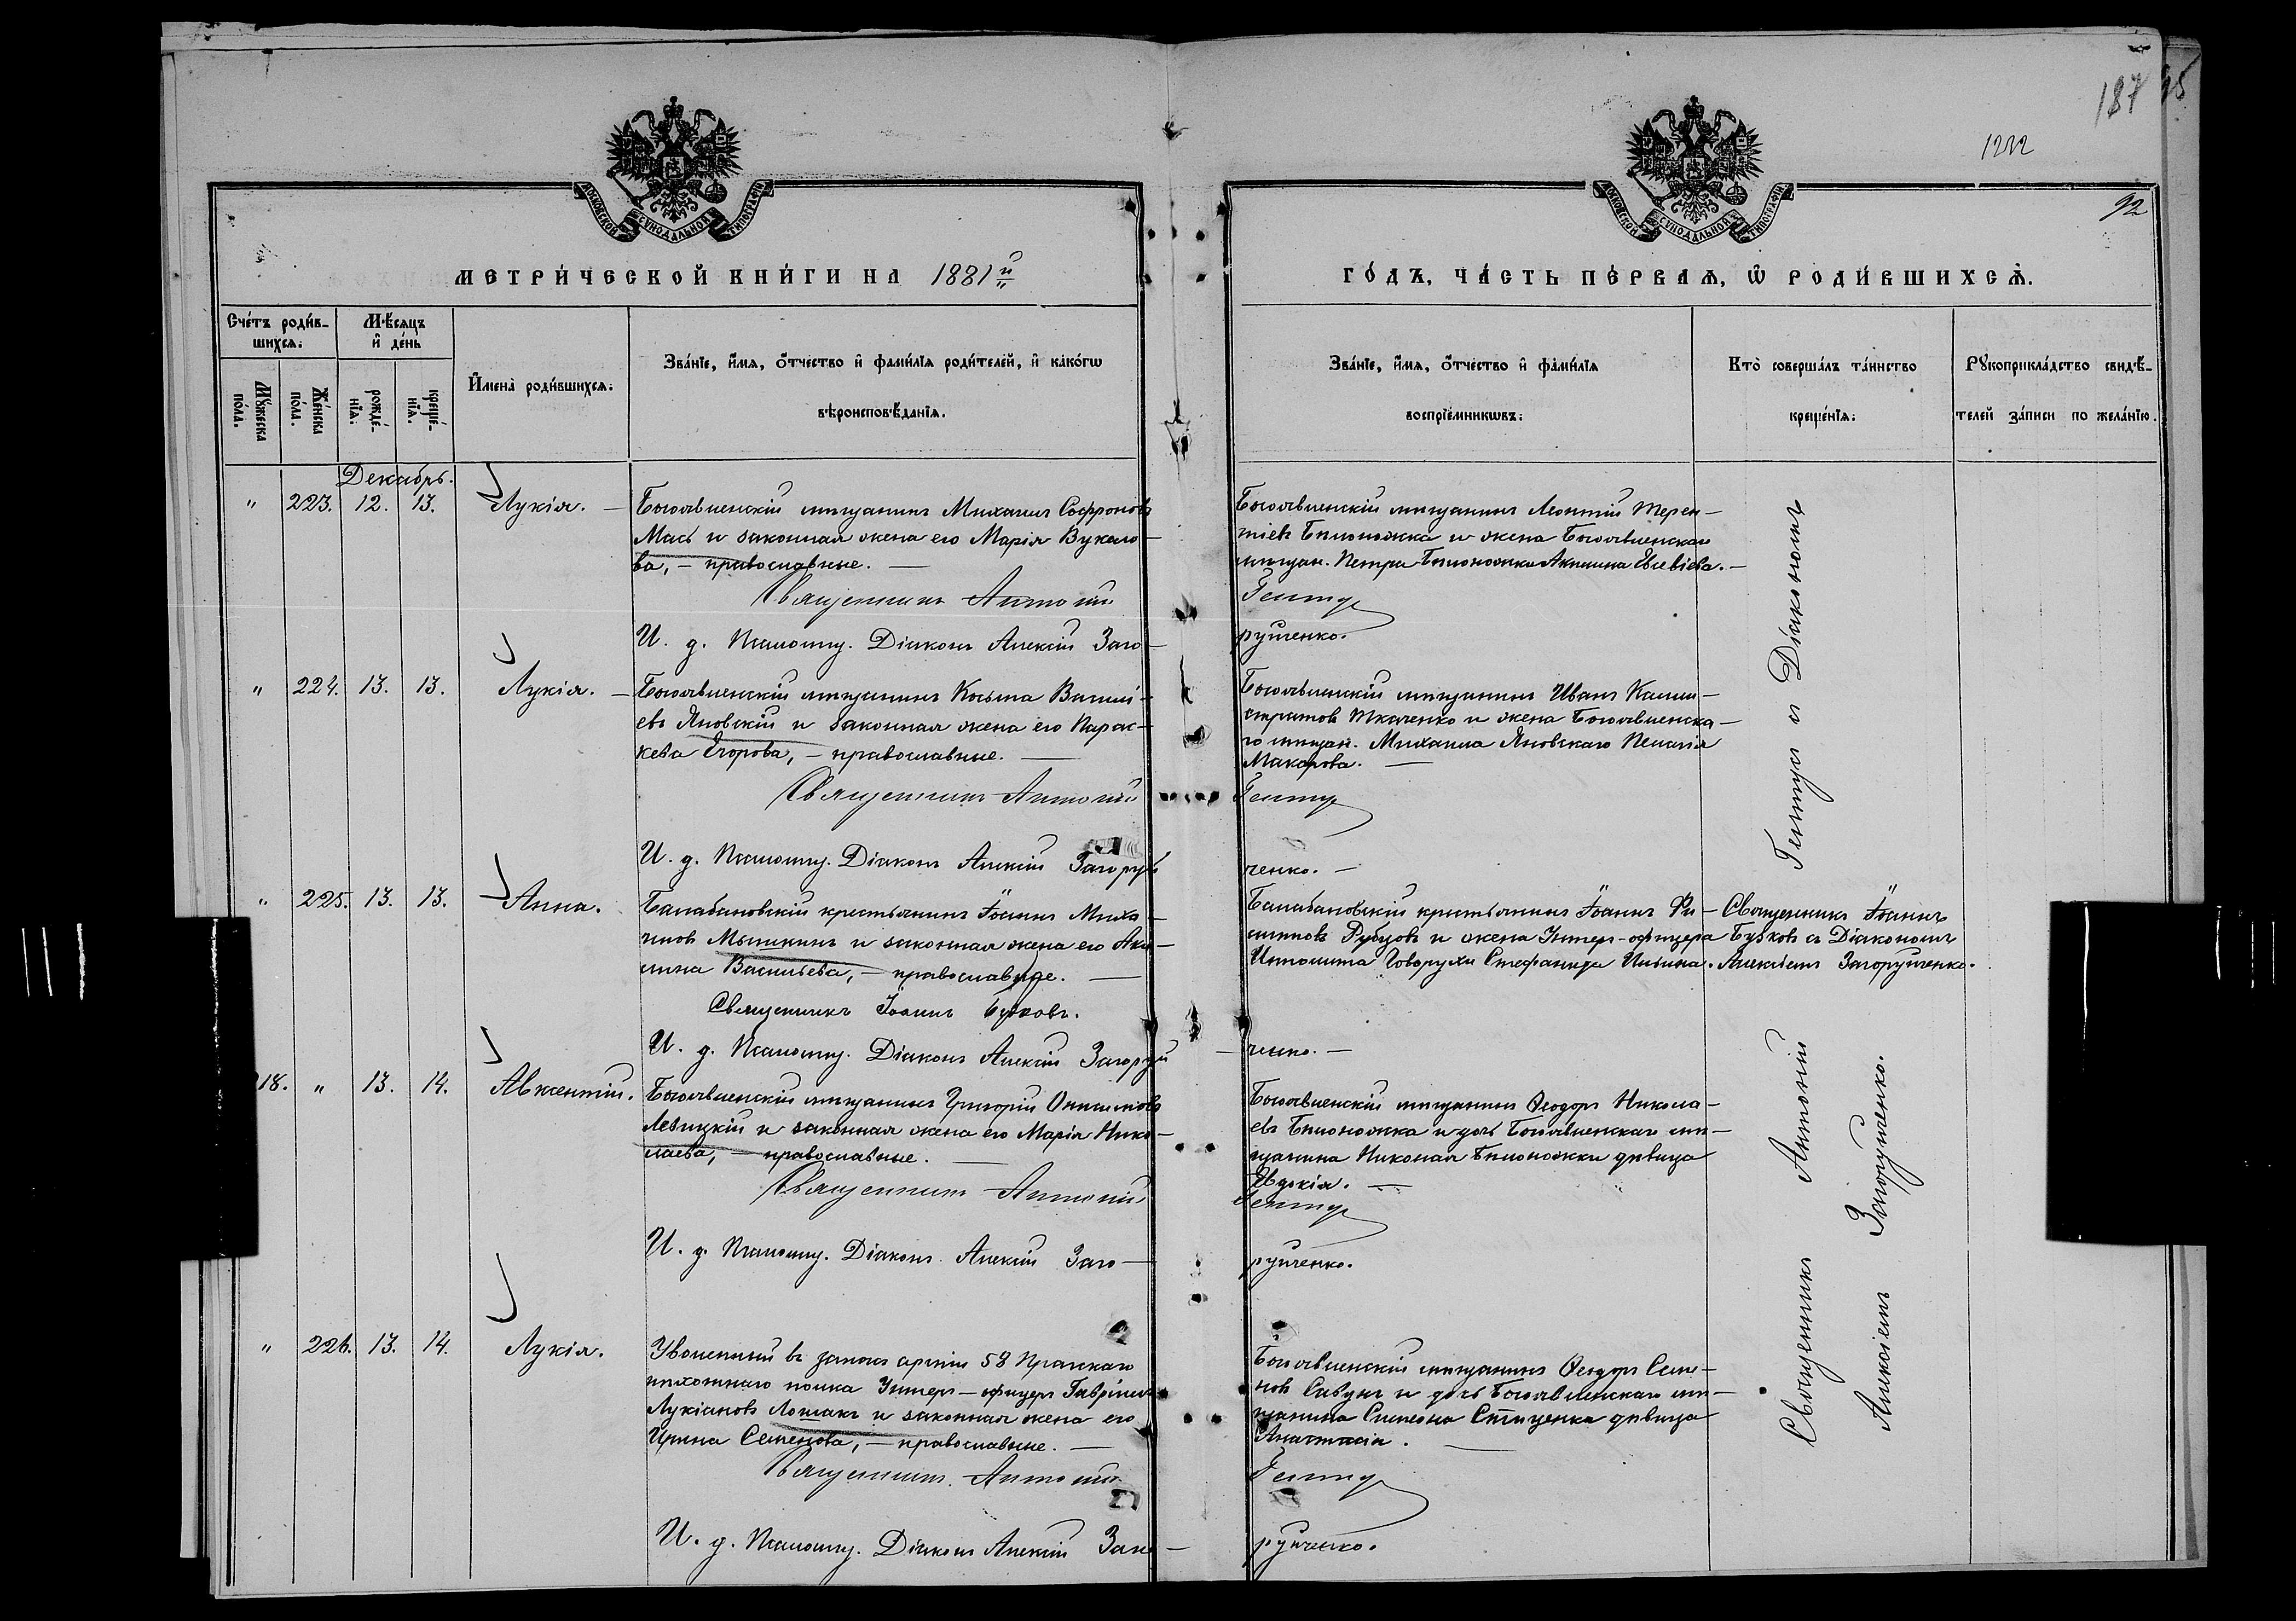 187
1222
92
МОСКОВСКОЙ СУНОДАЛЬНОЙ ТИПОГРАФІИ
МОСКОВСКОЙ СУНОДАЛЬНОЙ ТИПОГРАФІИ
МЕТРИ́ЧЕСКОЙ КНИ́ГИ НА 1881й
ГО́ДЪ, ЧА́СТЬ ПЕ́РВАѦ, Ѡ҆ РОДИ́ВШИХСѦ.
Сче́тъ роди́в-
шихсѧ:
Мꙋ́жеска по́ла.
Же́нска по́ла.
Мѣ́сѧцъ
и҆ де́нь
рожде́-
нїѧ.
креще́-
нїѧ.
И҆мена̀ роди́вшихсѧ:
Зва́нїе, и҆́мѧ, ѻ҆́тчество и҆ фами́лїѧ роди́телей, и҆ како́гѡ
вѣроисповѣ́данїѧ.
Зва́нїе, и҆́мѧ, ѻ҆́тчество и҆ фами́лїѧ
воспрїе́мникѡвъ:
Кто̀ соверша́лъ та́инство
креще́нїѧ:
Рꙋкоприкла́дство свидѣ́-
телей за́писи по жела́нїю.
Декабрь.
" 223. 12. 13. Лукія. —
Богоявленскій мѣщанинъ Михаилъ Софроновъ
Мась и законная жена его Марія Вукало-
ва, — православные. —
Священникъ Антоній
И. д. Псаломщ. Діаконъ Алексій Заго-
Богоявленскій мѣщанинъ Леонтій Терен-
тіевъ Бѣлоножка и жена Богоявленскаго
мѣщан. Петра Бѣлоножки Акилина Евсѣіева. —
Гентуз
руйченко.
" 224. 13. 13. Лукія. —
Богоявленскій мѣщанинъ Косьма Василі-
евъ Яновскій и законная жена его Парас-
кева Егорова, — православные. —
Священникъ Антоній
И. д. Псаломщ. Діаконъ Алексій Загоруй
Богоявленскій мѣщанинъ Иванъ Калли-
стратовъ Ткаченко и жена Богоявленска-
го мѣщан. Михаила Яновскаго Пелагія
Макарова. —
ченко. —
" 225. 13. 13. Анна.
Балабановскій крестьянинъ Іоаннъ Миха-
иловъ Мышкинъ и законная жена его Аки-
лина Васильева, — православные. —
Священникъ Іоаннъ Бутковъ.
И. д. Псаломщ. Діаконъ Алексій Загоруй
Балабановскій крестьянинъ Іоаннъ Фи-
липповъ Рубцовъ и жена Унтеръ-офицера
Ипполита Говорухи Стефанида Ильина.
ченко. —
Священникъ Іоаннъ
Бутковъ съ Діакономъ
Алексіемъ Загоруйченко.
218. " 13. 14. Авксентій.
Богоявленскій мѣщанинъ Григорій Онисимовъ
Левицкій и законная жена его Марія Нико-
лаева, — православные. —
Священникъ Антоній
И. д. Псаломщ. Діаконъ Алексій Заго—
Богоявленскій мѣщанинъ Ѳеодоръ Никола-
евъ Бѣлоножка и дочь Богоявленскаго мѣ-
щанина Николая Бѣлоножки дѣвица
Евдокія. —
руйченко.
" 226. 13. 14. Лукія.
Уволенный въ запасъ арміи 58 Пражскаго
пѣхотнаго полка Унтеръ-офицеръ Гавріилъ
Лукіановъ Лошакъ и законная жена его
Ирина Семенова, — православные. —
Священникъ Антоній
И. д. Псаломщ. Діаконъ Алексій Заго—
Богоявленскій мѣщанинъ Ѳеодоръ Семе-
новъ Савунъ и дочь Богоявленскаго мѣ-
щанина Симеона Стаценка дѣвица
Анастасія. —
руйченко.
Священникъ Антоній съ Діакономъ
Алексіемъ Загоруйченко.